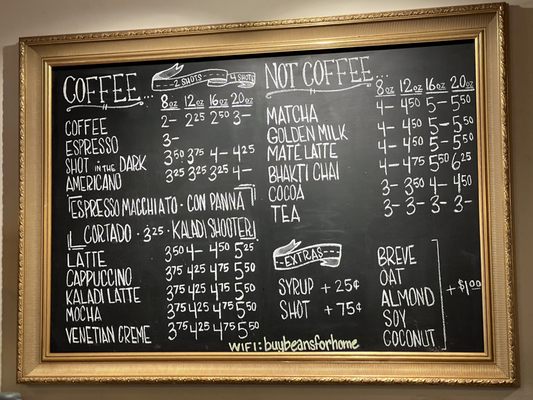 COFFEE... 2 SHOTS 4 SHOTS
8oz 12oz 16oz 20oz
COFFEE 2- 2 25 2 50 3-
ESPRESSO 3-
SHOT IN THE DARK 3 50 3 75 4- 4 25
AMERICANO 3 25 3 25 3 25 4-
ESPRESSO MACCHIATO - CON PANNA
CORTADO - 3 25 - KALADI SHOOTER
LATTE 3 50 4- 4 50 5 25
CAPPUCCINO 3 75 4 25 4 75 5 50
KALADI LATTE 3 75 4 25 4 75 5 50
MOCHA 3 75 4 25 4 75 5 50
VENETIAN CREME 3 75 4 25 4 75 5 50
NOT COFFEE...
8oz 12oz 16oz 20oz
MATCHA 4- 4 50 5- 5 50
GOLDEN MILK 4- 4 50 5- 5 50
MATE LATTE 4- 4 50 5- 5 50
BHAKTI CHAI 4- 4 75 5 50 6 25
COCOA 3- 3 50 4- 4 50
TEA 3- 3- 3- 3-
EXTRAS
SYRUP + 25¢
SHOT + 75¢
BREVE
OAT
ALMOND + $1.00
SOY
COCONUT
WIFI: buybeansforhome